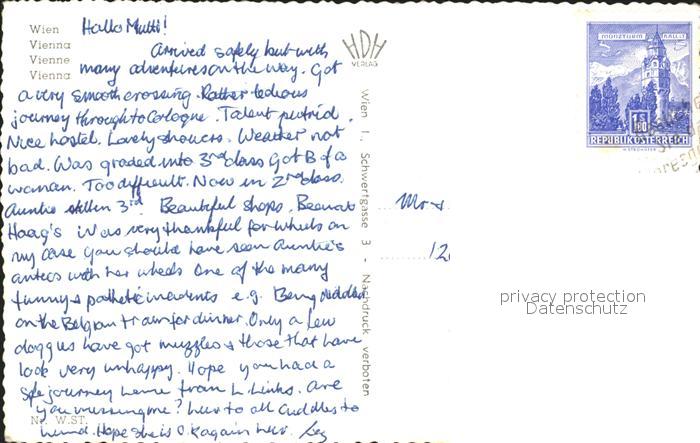 Wien
Vienna
Vienne
Vienna
Hallo Mutti!
Arrived safely but with
many adventures on the way. Got
a very smooth crossing. Rather tedious
journey through to Cologne. Talent putrid.
Nice hostel. Lovely showers. Weather not
bad. Was graded into 3rd class Got B of a
woman. Too difficult. Now in 2nd class.
Auntie still in 3rd. Beautiful shops.
Haag's Was very thankful for wheels on
my case you should have seen Auntie's
antics with her wheels One of the many
funny & pathetic incidents e.g. Being diddled
on the Belgian train for dinner. Only a few
doggies have got muzzles & those that have
look very unhappy. Hope you had a
safe journey home from L. Links. Are
you missing me? luv to all Cuddles to
Hope she is O.K again luv.
W.ST.
HDH
VERLAG
Wien I, Schwertgasse 3 - Nachdruck verboten
MÜNZTURM HALL I. T.
REPUBLIK ÖSTERREICH
Mr &
12
privacy protection
Datenschutz